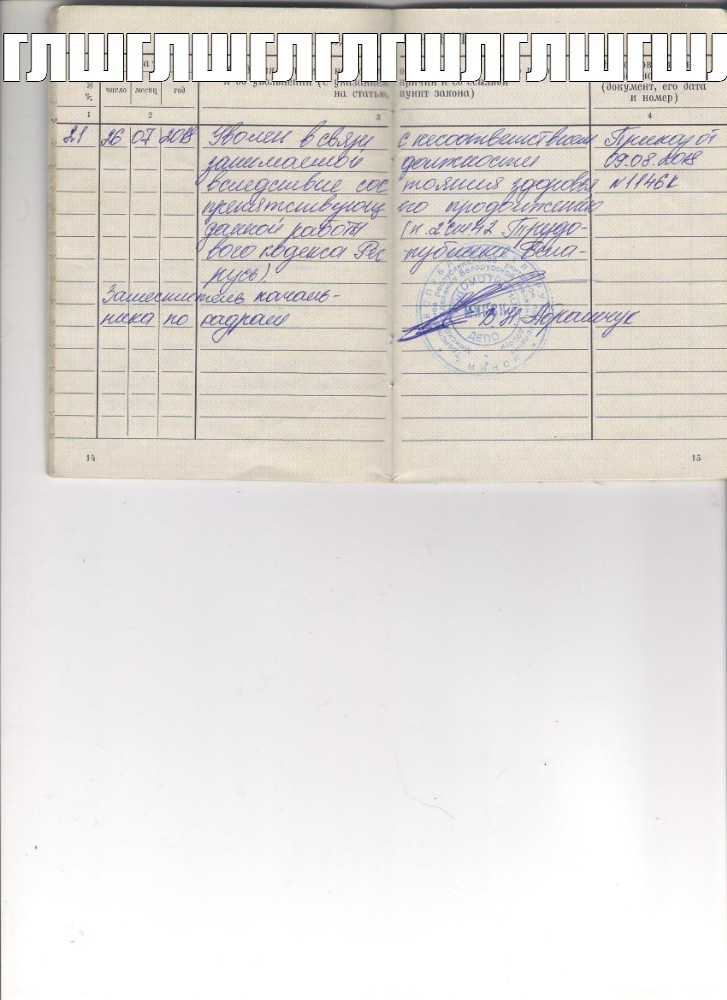 ГЛШГЛШГЛШГЛШГЛШГЛШГЛШ
на статью, пункт закона)
(документ, его дата
и номер)
число месяц год
1 2 3 4
21 26 07 2018 Уволен в связи с несоответствием Приказ от
занимаемой должности 09.08.2018
вследствие состояния здоровья №1146к
препятствующего продолжению
данной работы (п. 2 ст. 42 Трудо-
вого кодекса Республики Бела-
русь).
Заместитель началь-
ника по кадрам В.Н. Абрамчук
ДЕПО
МИНСК
14 15